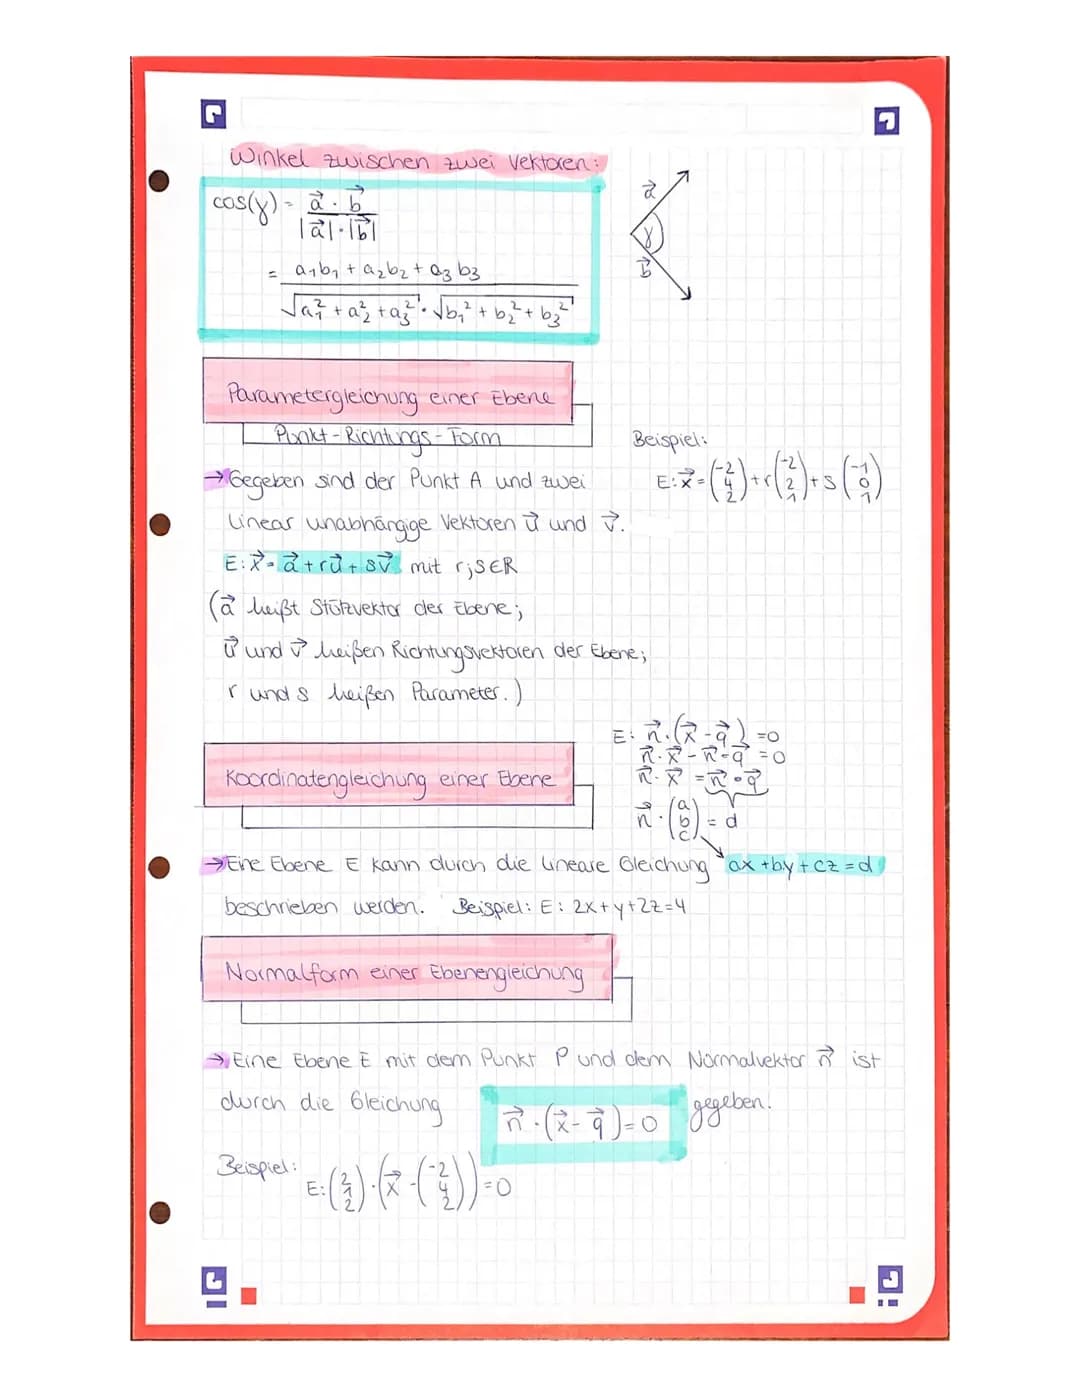 Winkel zwischen zwei Vektoren:
cos(γ) = a⃗ · b⃗ / |a⃗|·|b⃗|
= a₁b₁ + a₂b₂ + a₃b₃ / √(a₁² + a₂² + a₃²) · √(b₁² + b₂² + b₃²)
a⃗
γ
b⃗
Parametergleichung einer Ebene
Punkt-Richtungs-Form
→ Gegeben sind der Punkt A und zwei
linear unabhängige Vektoren u⃗ und v⃗.
E: x⃗ = a⃗ + ru⃗ + sv⃗ mit r;s∈R
(a⃗ heißt Stützvektor der Ebene;
u⃗ und v⃗ heißen Richtungsvektoren der Ebene;
r und s heißen Parameter.)
Beispiel:
E: x⃗ = (-2 4 2) + r (-2 2 1) + s (-1 0 1)
Koordinatengleichung einer Ebene
E: n⃗·(x⃗ - q⃗) = 0
n⃗·x⃗ - n⃗·q⃗ = 0
n⃗·x⃗ = n⃗·q⃗
n⃗·(a b c) = d
→ Eine Ebene E kann durch die lineare Gleichung ax + by + cz = d
beschrieben werden. Beispiel: E: 2x + y + 2z = 4
Normalform einer Ebenengleichung
→ Eine Ebene E mit dem Punkt P und dem Normalvektor n⃗ ist
durch die Gleichung n⃗·(x⃗ - q⃗) = 0 gegeben.
Beispiel: E: (2 1 2)·(x⃗ - (-2 4 2)) = 0